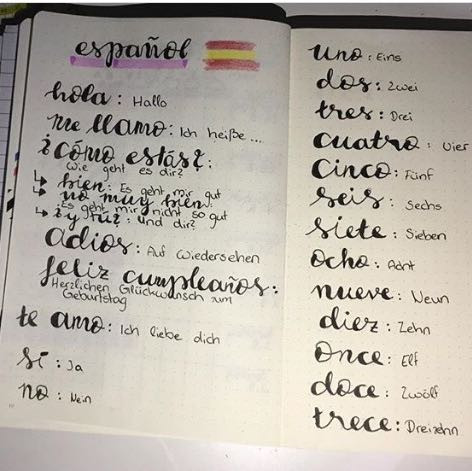 español
hola: Hallo
me llamo: Ich heiße ...
¿cómo estás?:
Wie geht es dir?
↳ bien: Es geht mir gut
↳ no muy bien:
Es geht mir nicht so gut
↳ ¿y tú?: Und dir?
adios: Auf Wiedersehen
feliz cumpleaños:
Herzlichen Glückwunsch zum
Geburtstag
te amo: Ich liebe dich
sí: Ja
no: Nein
uno: Eins
dos: Zwei
tres: Drei
cuatro: Vier
cinco: Fünf
seis: Sechs
siete: Sieben
ocho: Acht
nueve: Neun
diez: Zehn
once: Elf
doce: Zwölf
trece: Dreizehn